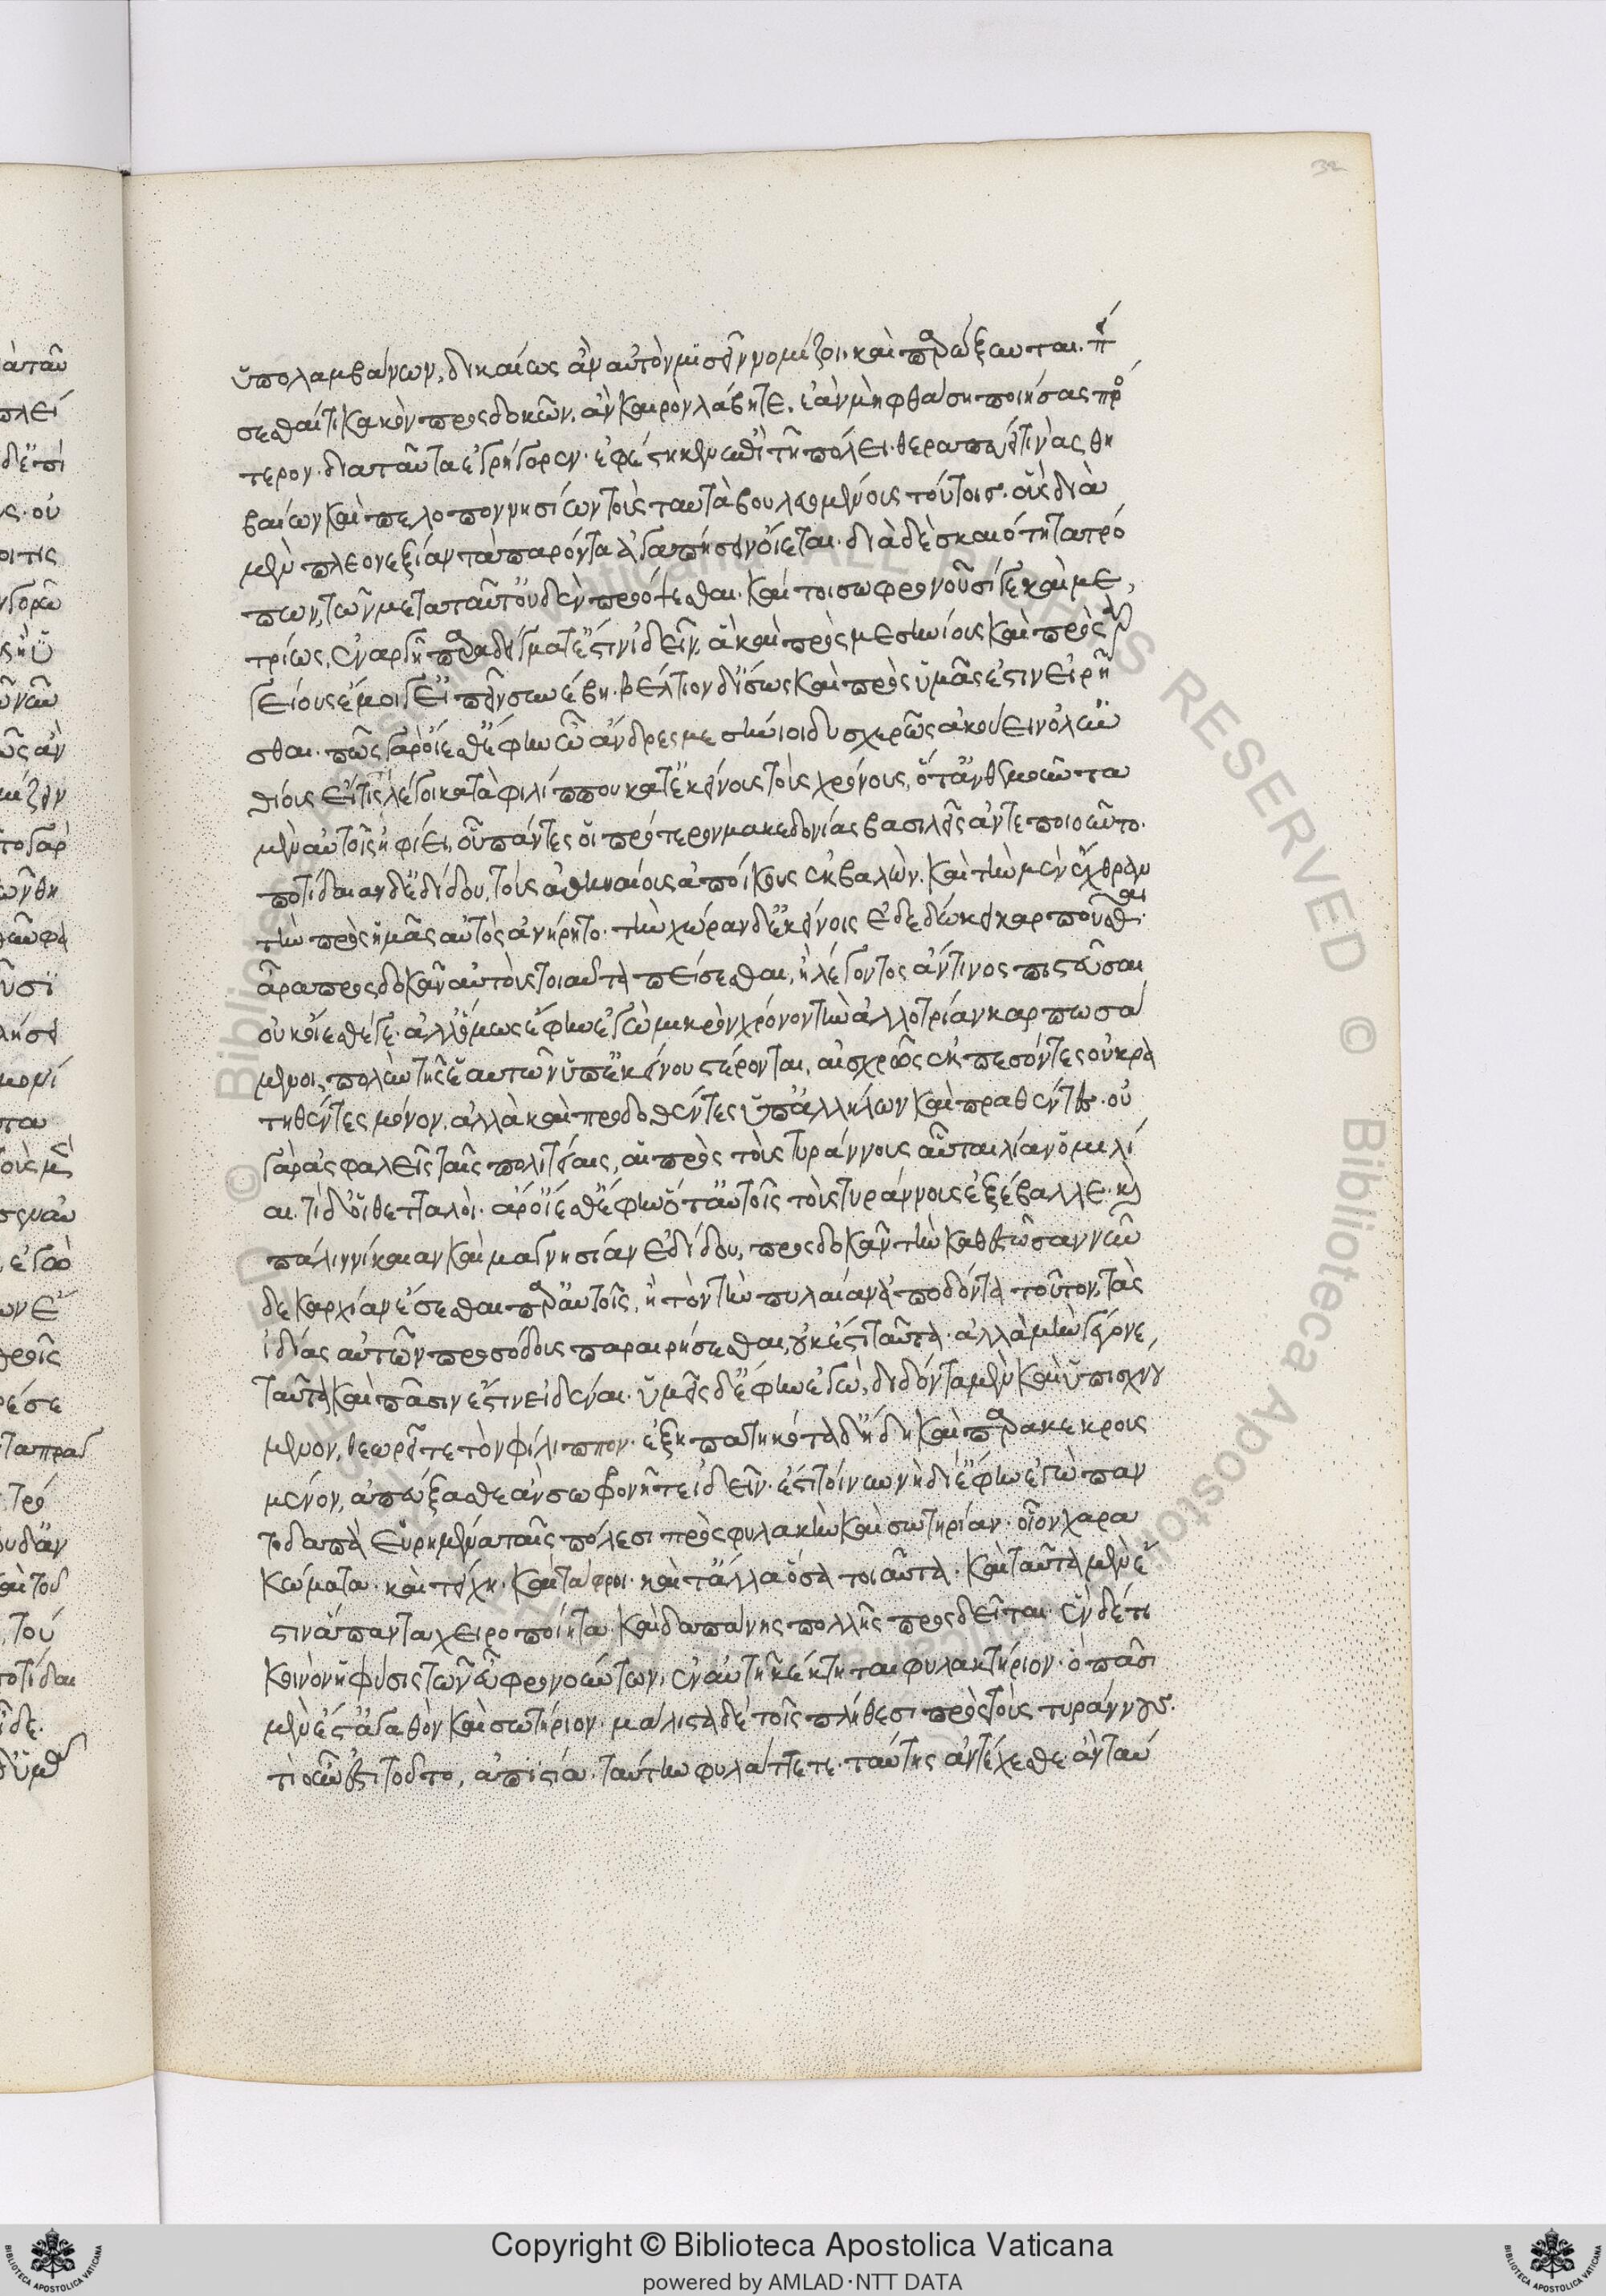 32
ὑπολαμβάνων, δικαίως ἂν αὐτὸν μισεῖν νομίζοι. καὶ παρώξυνται. πεί
σεσθαί τι κακὸν προσδοκῶν, ἂν καιρὸν λάβητε, ἐὰν μὴ φθάσῃ ποιήσας πρό
τερον. διὰ ταῦτα ἐγρήγορεν. ἐφέστηκεν ἐπὶ τῇ πόλει. θεραπεύει τινὰς θη
βαίων καὶ πελοποννησίων τοὺς ταυτὰ βουλομένους τούτοισ. οὓς διὰ
μὲν πλεονεξίαν τὰ παρόντα ἀγαπήσειν οἴεται. διὰ δὲ σκαιότητα τρό
πων, τῶν μετὰ ταῦτ' οὐδὲν προόψεσθαι. καίτοι σωφρονοῦσί γε καὶ με
τρίως, ἐναργῆ παραδείγματ' ἔστιν ἰδεῖν, ἃ καὶ πρὸς μεσηνίους καὶ πρὸς ἀρ
γείους ἔμοιγ' εἰπεῖν συνέβη. βέλτιον δ' ἴσως καὶ πρὸς ὑμᾶς ἐστιν εἰρῆ
σθαι. πῶς γὰρ οἴεσθ' ἔφην ὦ ἄνδρες μεσήνιοι δυσχερῶς ἀκούειν ὀλυν
θίους εἴ τίς τι λέγοι κατὰ φιλίππου κατ' ἐκείνους τοὺς χρόνους, ὅτ' ἀνθεμοῦντα
μὲν αὐτοῖς ἠφίει, οὗ πάντες οἱ πρότερον μακεδονίας βασιλεῖς ἀντεποιοῦντο.
ποτίδαιαν δ' ἐδίδου, τοὺς ἀθηναίους ἀποίκους ἐκβαλών. καὶ τὴν μὲν ἔχθραν
τὴν πρὸς ἡμᾶς αὐτὸς ἀνῄρητο. τὴν χώραν δ' ἐκείνοις ἐδεδώκει καρποῦσθαι.
ἆρα προσδοκᾶν αὐτοὺς τοιαῦτα πείσεσθαι, ἢ λέγοντος ἄν τινος πιστεῦσαι
οὐκ οἴεσθέ γε. ἀλλ' ὅμως ἔφην ἐγὼ μικρὸν χρόνον τὴν ἀλλοτρίαν καρπωσά
μενοι, πολὺν τῆς ἑαυτῶν ὑπ' ἐκείνου στέρονται, αἰσχρῶς ἐκπεσόντες οὐ κρα
τηθέντες μόνον, ἀλλὰ καὶ προδοθέντες ὑπ' ἀλλήλων καὶ πραθέντες. οὐ
γὰρ ἀσφαλεῖς ταῖς πολιτείαις, αἱ πρὸς τοὺς τυράννους αὗται λίαν ὁμιλί
αι. τί δ' οἱ θετταλοί. ἆρ' οἴεσθ' ἔφην ὅτ' αὐτοῖς τοὺς τυράννους ἐξέβαλλε. καὶ
πάλιν νίκαιαν καὶ μαγνησίαν ἐδίδου, προσδοκᾶν τὴν καθεστῶσαν νῦν
δεκαρχίαν ἔσεσθαι παρ' αὐτοῖς, ἢ τὸν τὴν πυλαίαν ἀποδόντα τοῦτον, τὰς
ἰδίας αὐτῶν προσόδους παραιρήσεσθαι, οὐκ ἔστι ταῦτα. ἀλλὰ μὴν γέγονε
ταῦτα καὶ πᾶσιν ἔστιν εἰδέναι. ὑμεῖς δ' ἔφην ἐγώ, διδόντα μὲν καὶ ὑπισχνού
μενον, θεωρεῖτε τὸν φίλιππον. ἐξηπατηκότα δ' ἤδη καὶ παρακεκρους
μένον, ἀπεύξασθε ἂν σωφρονῆτε ἰδεῖν. ἔστι τοίνυν νὴ δί' ἔφην ἐγὼ παν
τοδαπὰ εὑρημένα ταῖς πόλεσι πρὸς φυλακὴν καὶ σωτηρίαν. οἷον χαρα
κώματα. καὶ τείχη. καὶ τάφροι. καὶ τἄλλα ὅσα τοιαῦτα. καὶ ταῦτα μὲν ἔ
στιν ἅπαντα χειροποίητα. καὶ δαπάνης πολλῆς προσδεῖται. ἓν δέ τι
κοινὸν ἡ φύσις τῶν εὖ φρονούντων, ἐν αὑτῇ κέκτηται φυλακτήριον. ὃ πᾶσι
μὲν ἔστ' ἀγαθὸν καὶ σωτήριον. μάλιστα δὲ τοῖς πλήθεσι πρὸς τοὺς τυράννους.
τί οὖν ἐστι τοῦτο, ἀπιστία. ταύτην φυλάττετε. ταύτης ἀντέχεσθε. ἂν ταύ
Copyright © Biblioteca Apostolica Vaticana
powered by AMLAD·NTT DATA